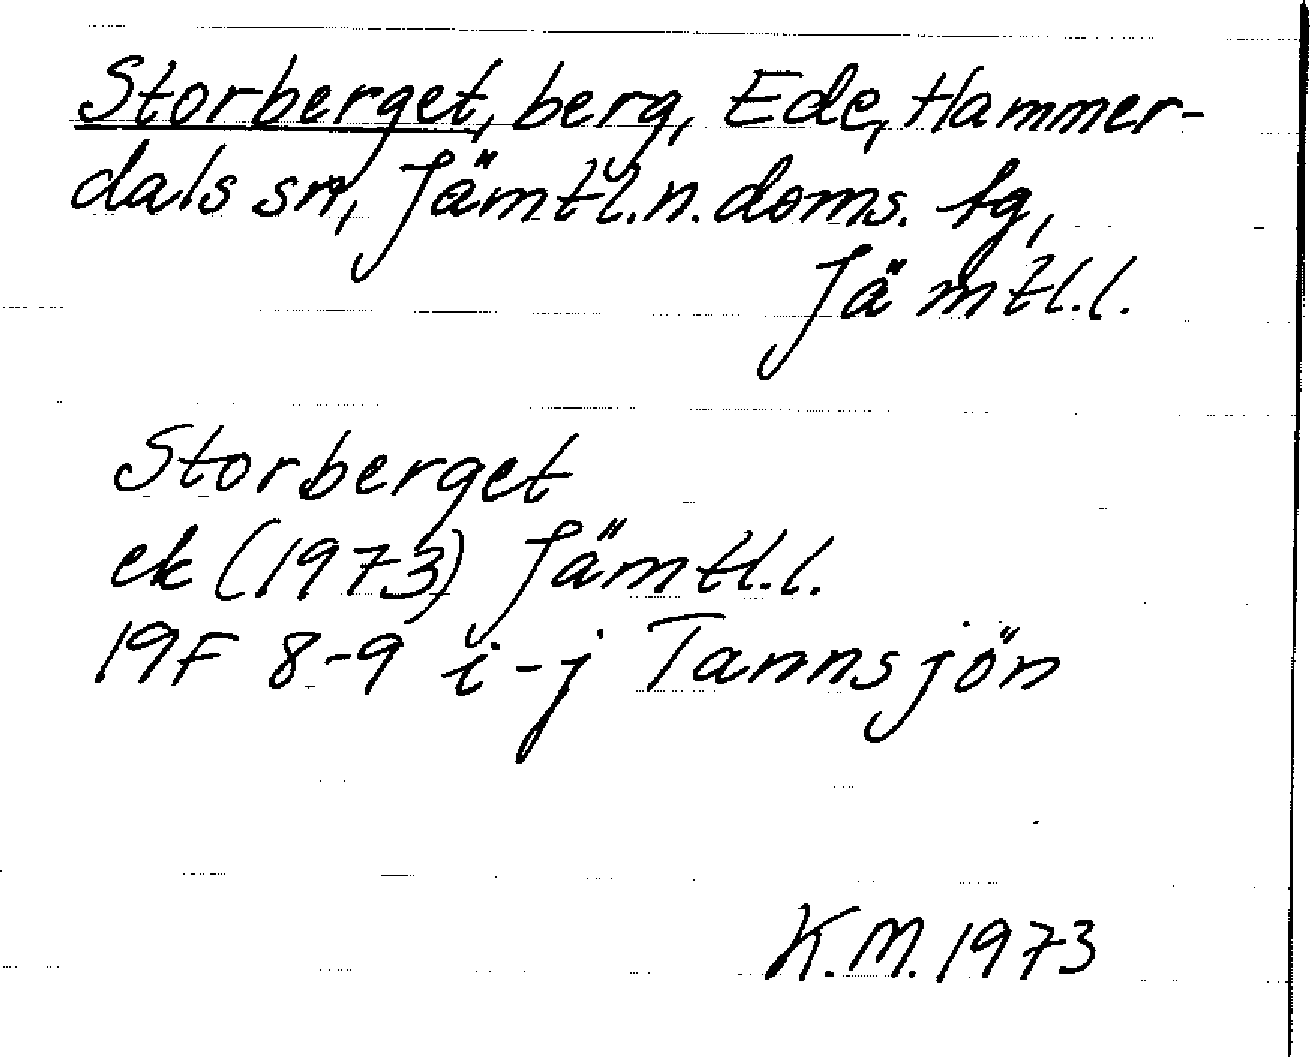 Storberget, berg, Ede, Hammer-
dals sn, Jämtl.n. doms. tg,
Jämtl.l.
Storberget
ek (1973) Jämtl.l.
19F 8-9 i-j Tannsjön
K.M. 1973